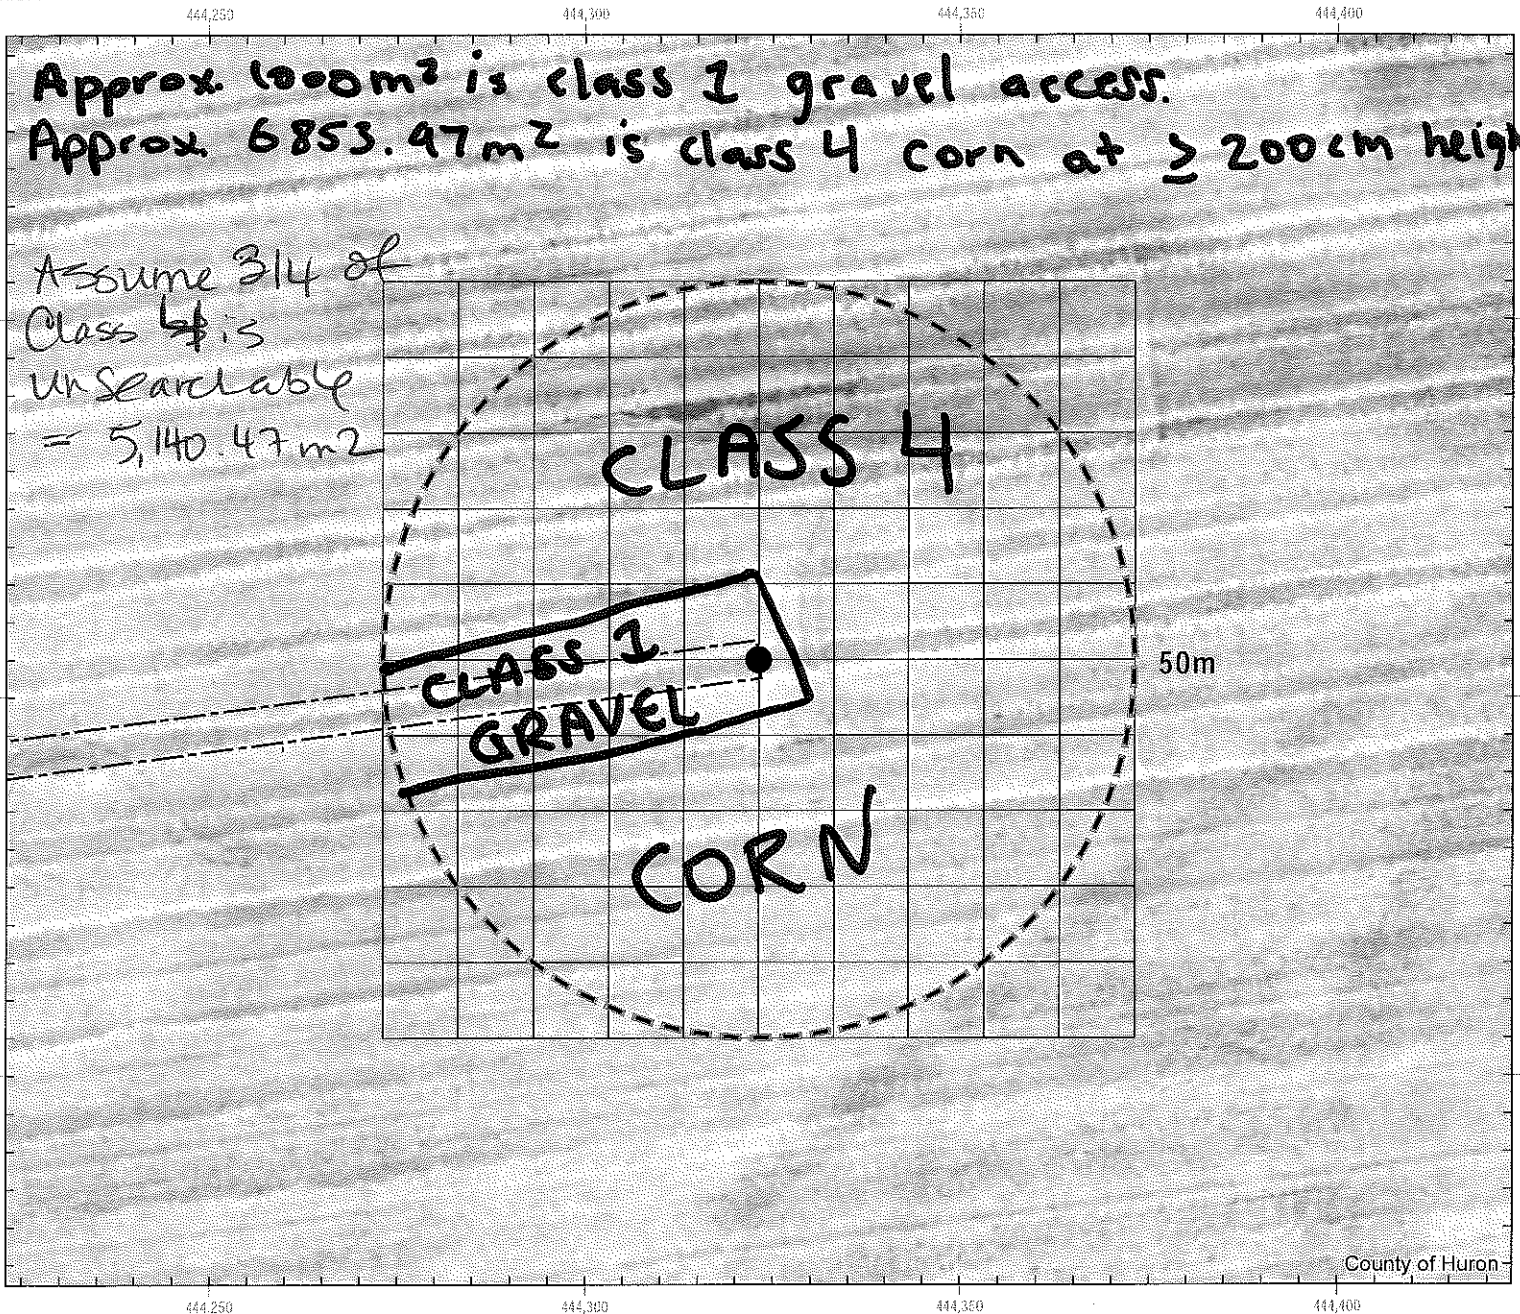 444,250 444,300 444,350 444,400
Approx. 1000m² is class 1 gravel access.
Approx. 6853.97m² is class 4 corn at ≥ 200cm heigh
Assume 3/4 of
Class 4 is
unsearchable
= 5,140.47m2
CLASS 4
CLASS 1
GRAVEL
50m
CORN
County of Huron
444,250 444,300 444,350 444,400